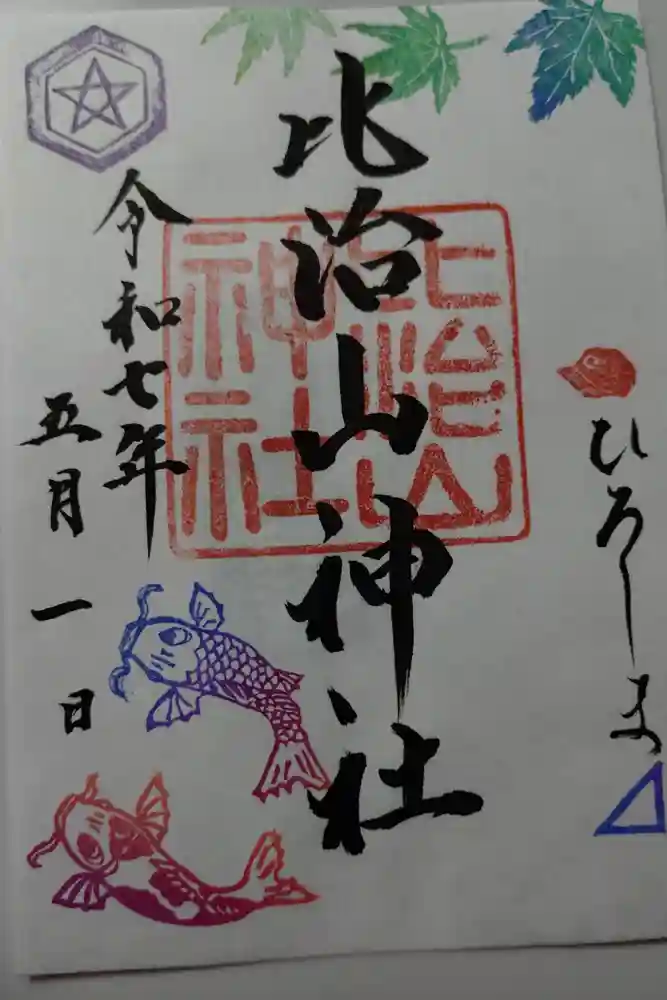 ひろしま
比治山神社
比治山
神社
令和七年
五月一日